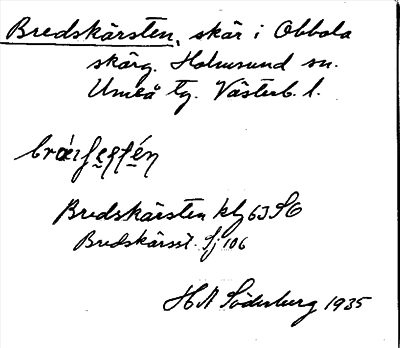 Bredskärsten, skär i Obbola
skärg. Holmsund sn.
Umeå tg. Västerb. l.
Bredskärsten kbl 63 SO
Bredskärsst. Sj 106
H A Söderburg 1935